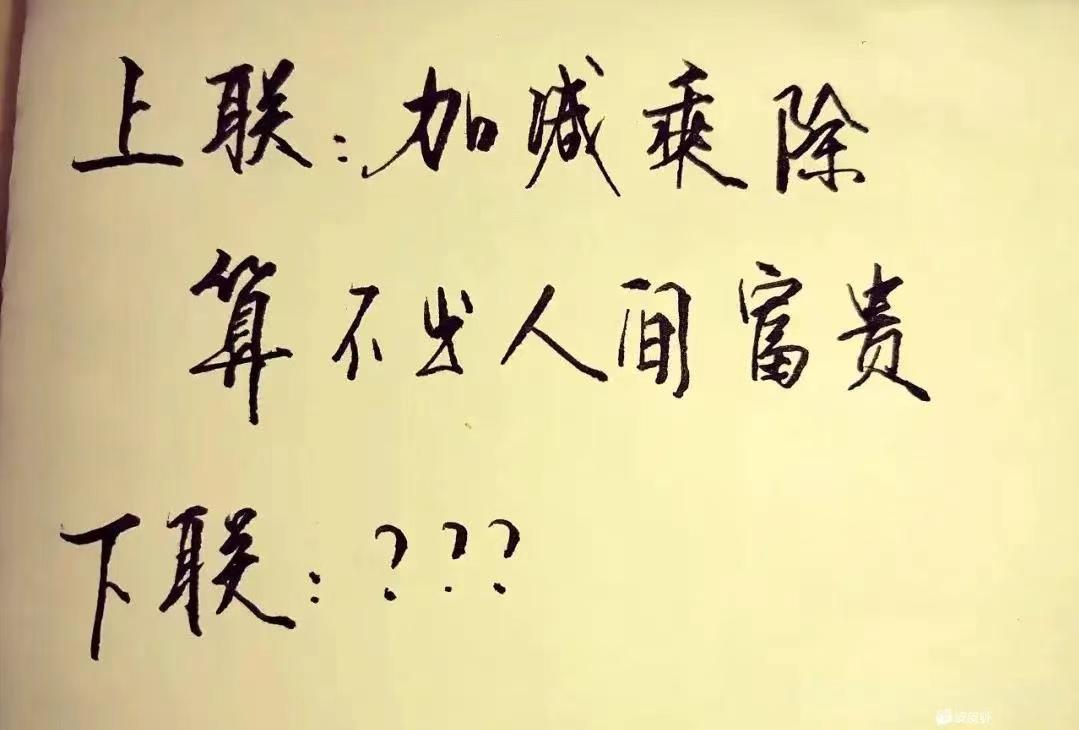 上联：加减乘除
算不出人间富贵
下联：？？？